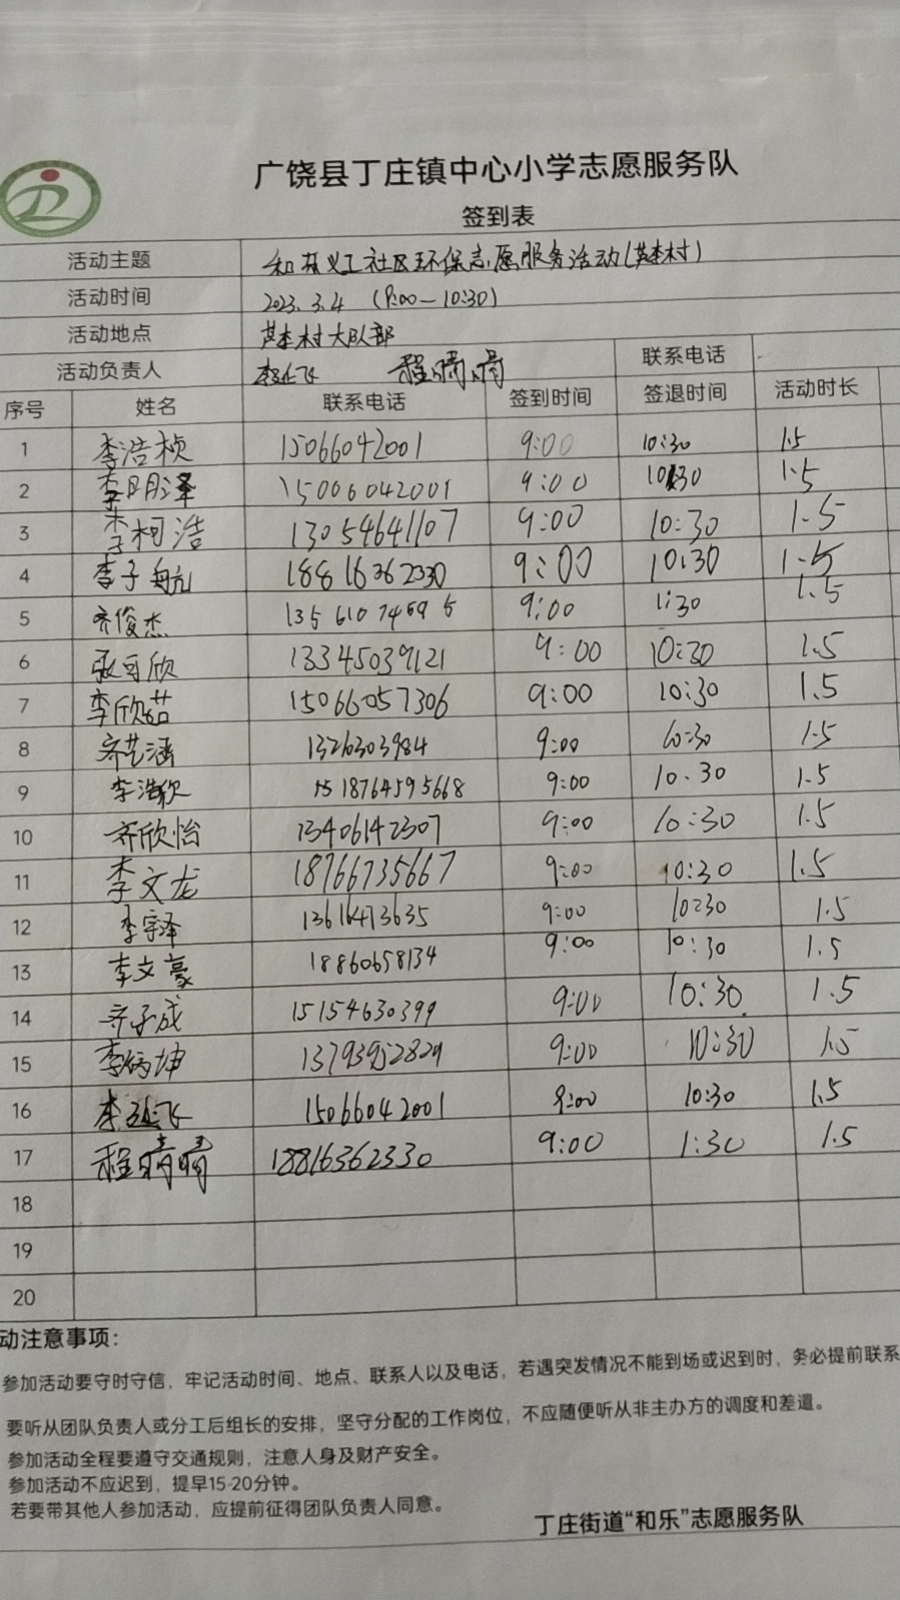 广饶县丁庄镇中心小学志愿服务队
签到表
活动主题 社区环保志愿服务活动
活动时间 2023.3.4 (9:00—10:30)
活动地点 村大队部
活动负责人 李延飞 程晴晴 联系电话
序号 姓名 联系电话 签到时间 签退时间 活动时长
1 李浩桢 15066042001 9:00 10:30 1.5
2 李明泽 15006042001 9:00 10:30 1.5
3 李柯浩 13054641107 9:00 10:30 1.5
4 李子航 18816362330 9:00 10:30 1.5
5 齐俊杰 9:00 1:30 1.5
6 张可欣 13345039121 9:00 10:30 1.5
7 李欣茹 15066057306 9:00 10:30 1.5
8 齐艺涵 1326303984 9:00 10:30 1.5
9 李浩欣 18764595668 9:00 10.30 1.5
10 齐欣怡 13406142307 9:00 10:30 1.5
11 李文龙 18766735667 9:00 10:30 1.5
12 李宇泽 9:00 10:30 1.5
13 李文豪 18860658134 9:00 10:30 1.5
14 齐子成 15154630399 9:00 10:30 1.5
15 李炳坤 9:00 10:30 1.5
16 李延飞 15066042001 9:00 10:30 1.5
17 程晴晴 18816362330 9:00 1:30 1.5
18
19
20
动注意事项：
参加活动要守时守信，牢记活动时间、地点、联系人以及电话，若遇突发情况不能到场或迟到时，务必提前联系
要听从团队负责人或分工后组长的安排，坚守分配的工作岗位，不应随便听从非主办方的调度和差遣。
参加活动全程要遵守交通规则，注意人身及财产安全。
参加活动不应迟到，提早15-20分钟。
若要带其他人参加活动，应提前征得团队负责人同意。
丁庄街道“和乐”志愿服务队